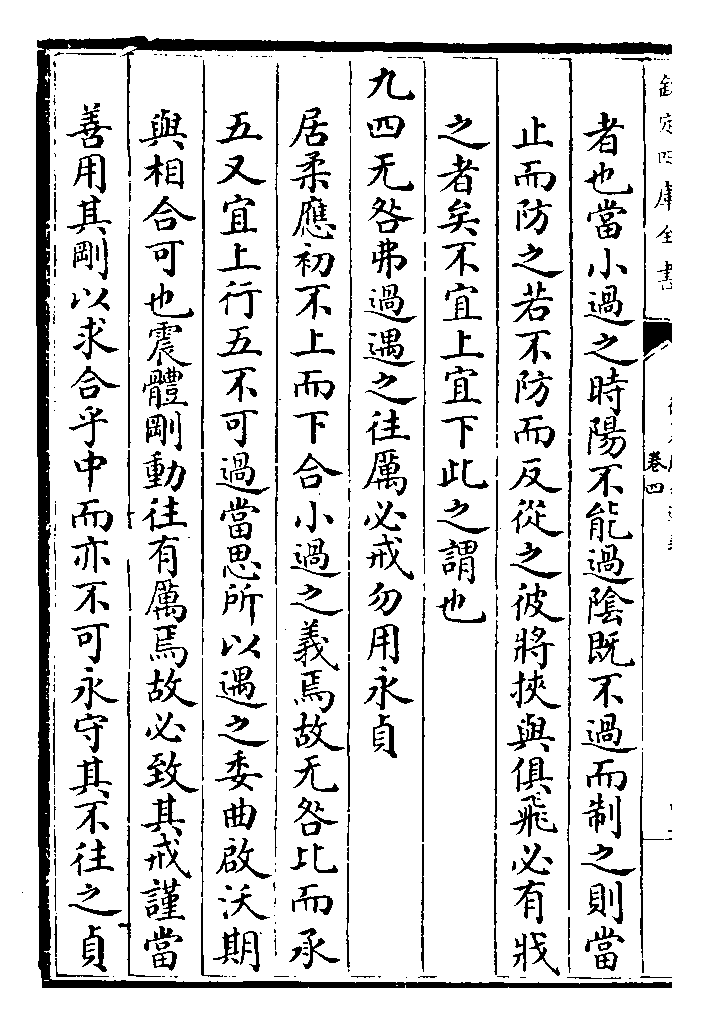 欽定四庫全書
卷四
者也當小過之時陽不能過陰既不過而制之則當
止而防之若不防而反從之彼將挾與俱飛必有戕
之者矣不宜上宜下此之謂也
九四无咎弗過遇之往厲必戒勿用永貞
居柔應初不上而下合小過之義焉故无咎比而承
五又宜上行五不可過當思所以遇之委曲啟沃期
與相合可也震體剛動往有厲焉故必致其戒謹當
善用其剛以求合乎中而亦不可永守其不往之貞